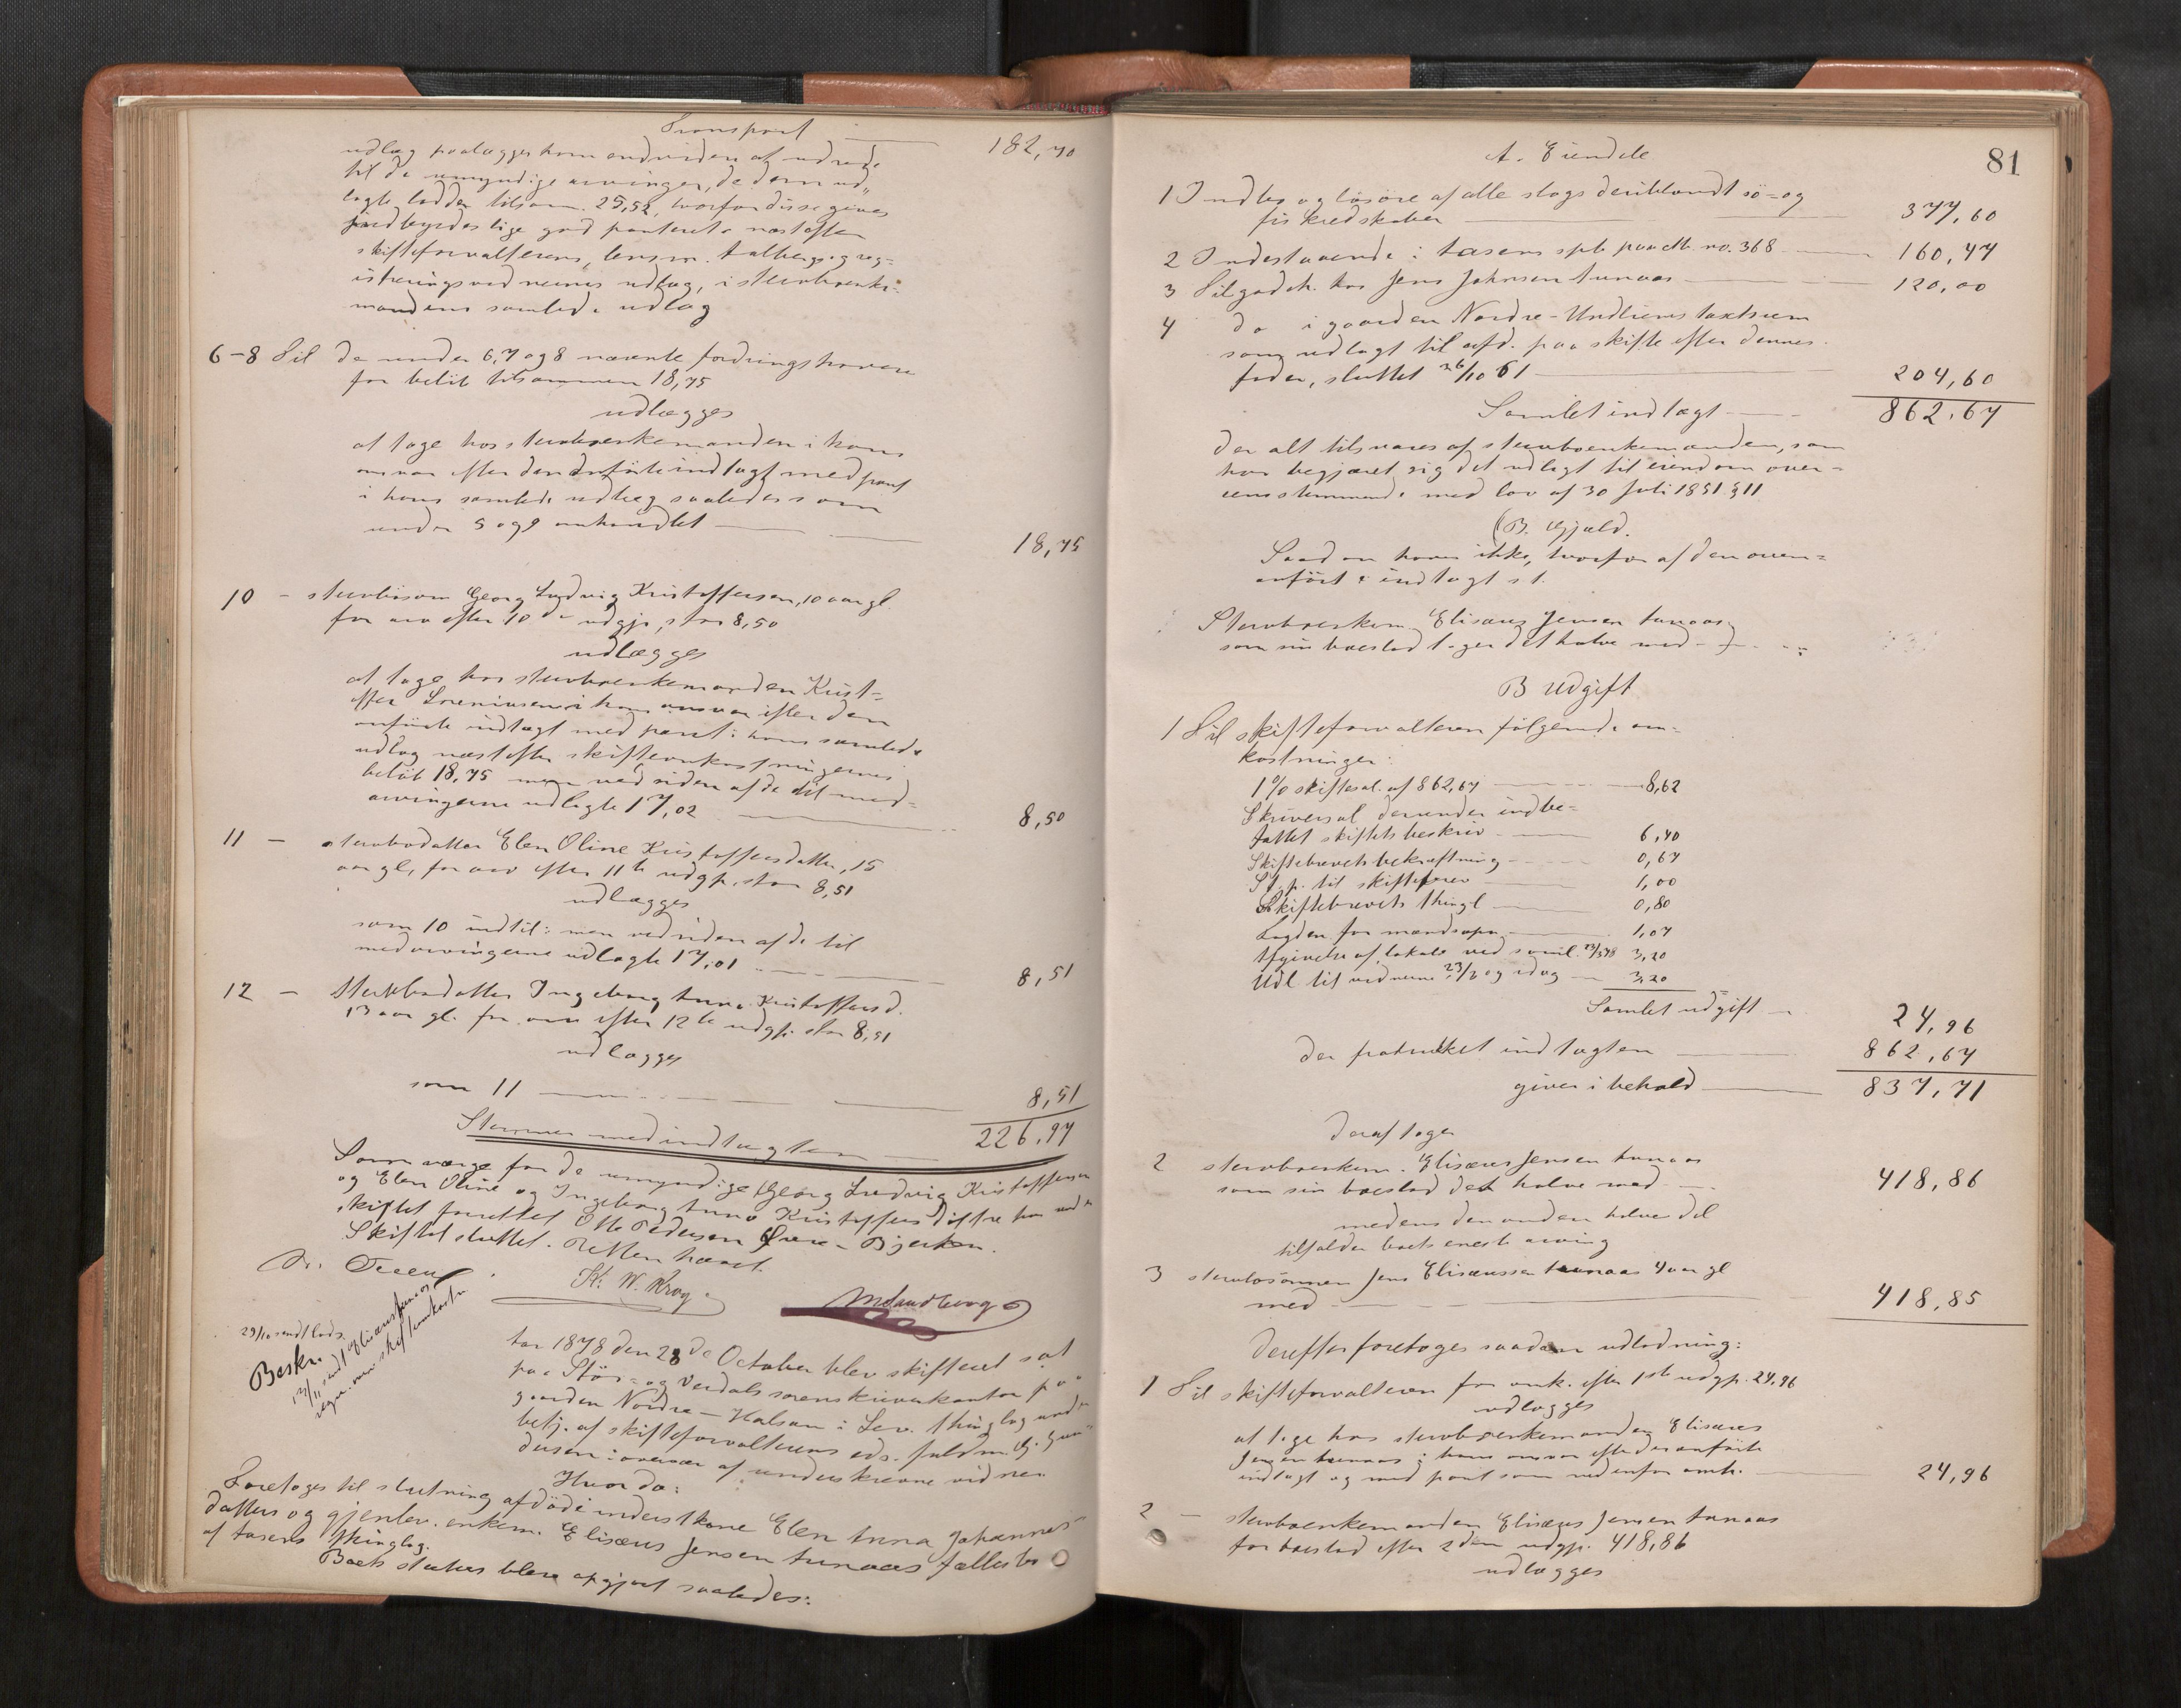 Transport 182,70
udlæg paalægges ham endvidere at udrede
til de umyndige arvinger, de dem ud„
lagte lodder tilsam. 25,52, hvorfor disse gives
indbyrdes lige god panteret næstefter
skifteforvalterens, lensm. talbergs og reg-
istreringsvidnernes udlæg, i stervboenke-
mandens samlede udlæg
6-8 Til de under 6, 7 og 8 nævnte fordringshavere
for beløb tilsammen 18,75
udlægges
at tage hos stervboenkemanden i hans
ansvar efter den anførte indtægt med pant
i hans samlede udlæg saaledes som
under 5 og 9 omhandlet 18,75
10 - stervbosøn Georg Ludvig Kristoffersen, 10 aar gl.
for arv efter 10de udgp, stor 8,50
udlægges
at tage hos stervboenkemanden Krist-
offer Lorentsen i hans ansvar efter den
anførte indtægt med pant i hans samlede
udlæg næstefter skifteomkostningernes
beløb 18,75 men ved siden af de til med-
arvingerne udlagte 17,02 8,50
11 - stervbodatter Elen Oline Kristoffersdatter, 15
aar gl, for arv efter 11te udgp. stor 8,51
udlægges
som 10 indtil: men ved siden af de til
medarvingerne udlagte 17,01 8,51
12 - Stervbodatter Ingeborg Anna Kristoffersd.
13 aar gl. for arv efter 12te udgp. stor 8,51
udlægges
som 11 8,51
Stemmer med indtægten 226,97
Som værge for de umyndige Georg Ludvig Kristoffersen
og Elen Oline og Ingeborg Anna Kristoffersdøttre har under
skiftet forrettet Otto Pedersen Øvre-Bjerken.
Skiftet sluttet. Retten hævet.
K. W. Krog. M Sandberg
29/10 sendt lods.
Beskr.
Aar 1878 den 28de October blev skifteret sat
paa Stør- og Verdals sorenskriverkontor paa
gaarden Nordre-Halsan i Lev. thinglag under
betj. af skifteforvalterens eds. fuldm. G. Gun-
dersen i overvær af underskrevne vidner
Hvor da:
Foretoges til slutning afdøde inderstkone Elen Anna Johannes-
datters og gjenlev. enkem. Elisæus Jensen Aunaas fællesbo
af Aasens thinglag.
Boets status blev opgjort saaledes:
81
A. Eiendele
1 Indbo og løsøre af alle slags deriblandt sø- og
fiskeredskaber 377,60
2 Indestaaende i Aasens spb. paa ctb. no. 368 160,47
3 Tilgodeh. hos Jens Johnsen Aunaas 120,00
4 do i gaarden Nordre-Undliens taxtsum
som udlagt til afd. paa skifte efter dennes
fader, sluttet 26/10 61 204,60
Samlet indtægt 862,67
der alt tilsvares af stervboenkemanden, som
har begjæret sig det udlagt til eiendom over-
ensstemmende med lov af 30 Juli 1851 § 11
(B. Gjæld.
Saadan haves ikke, hvorfor af den oven-
anførte indtægt st.
Stervboenkem. Elisæus Jensen Aunaas
som sin boeslod tager det halve med
B Udgift
1 Til skifteforvalteren følgende om-
kostninger:
1 % skiftesal. af 862,67 8,62
Skriversal. derunder indbe-
fattet skiftets beskriv 6,40
Skiftebrevets bekræftning 0,67
St. p. til skiftebrev 1,00
Skiftebrevets thingl 0,80
Lægden for mandsopn. 1,07
Afgivelse af lokale ved saml. 23/3 78 3,20
Udl til vidnerne 23/3 og idag 3,20
Samlet udgift 24,96
der fratrukket indtægten 862,67
giver i behold 837,71
deraf tager
2 stervboenkem. Elisæus Jensen Aunaas
som sin boeslod det halve med 418,86
medens den anden halve del
tilfalder boets eneste arving
3 stervbosønnen Jens Elisæussen Aunaas 4 aar gl
med 418,85
Derefter foretoges saadan udlodning:
1 Til skifteforvalteren for omk. efter 1ste udgp. 24,96
udlægges
at tage hos stervboenkemanden Elisæus
Jensen Aunaas i hans ansvar efter den anførte
indtægt og med pant som nedenfor omh. 24,96
2 - stervboenkemanden Elisæus Jensen Aunaas
for boeslod efter 2den udgp. 418,86
udlægges